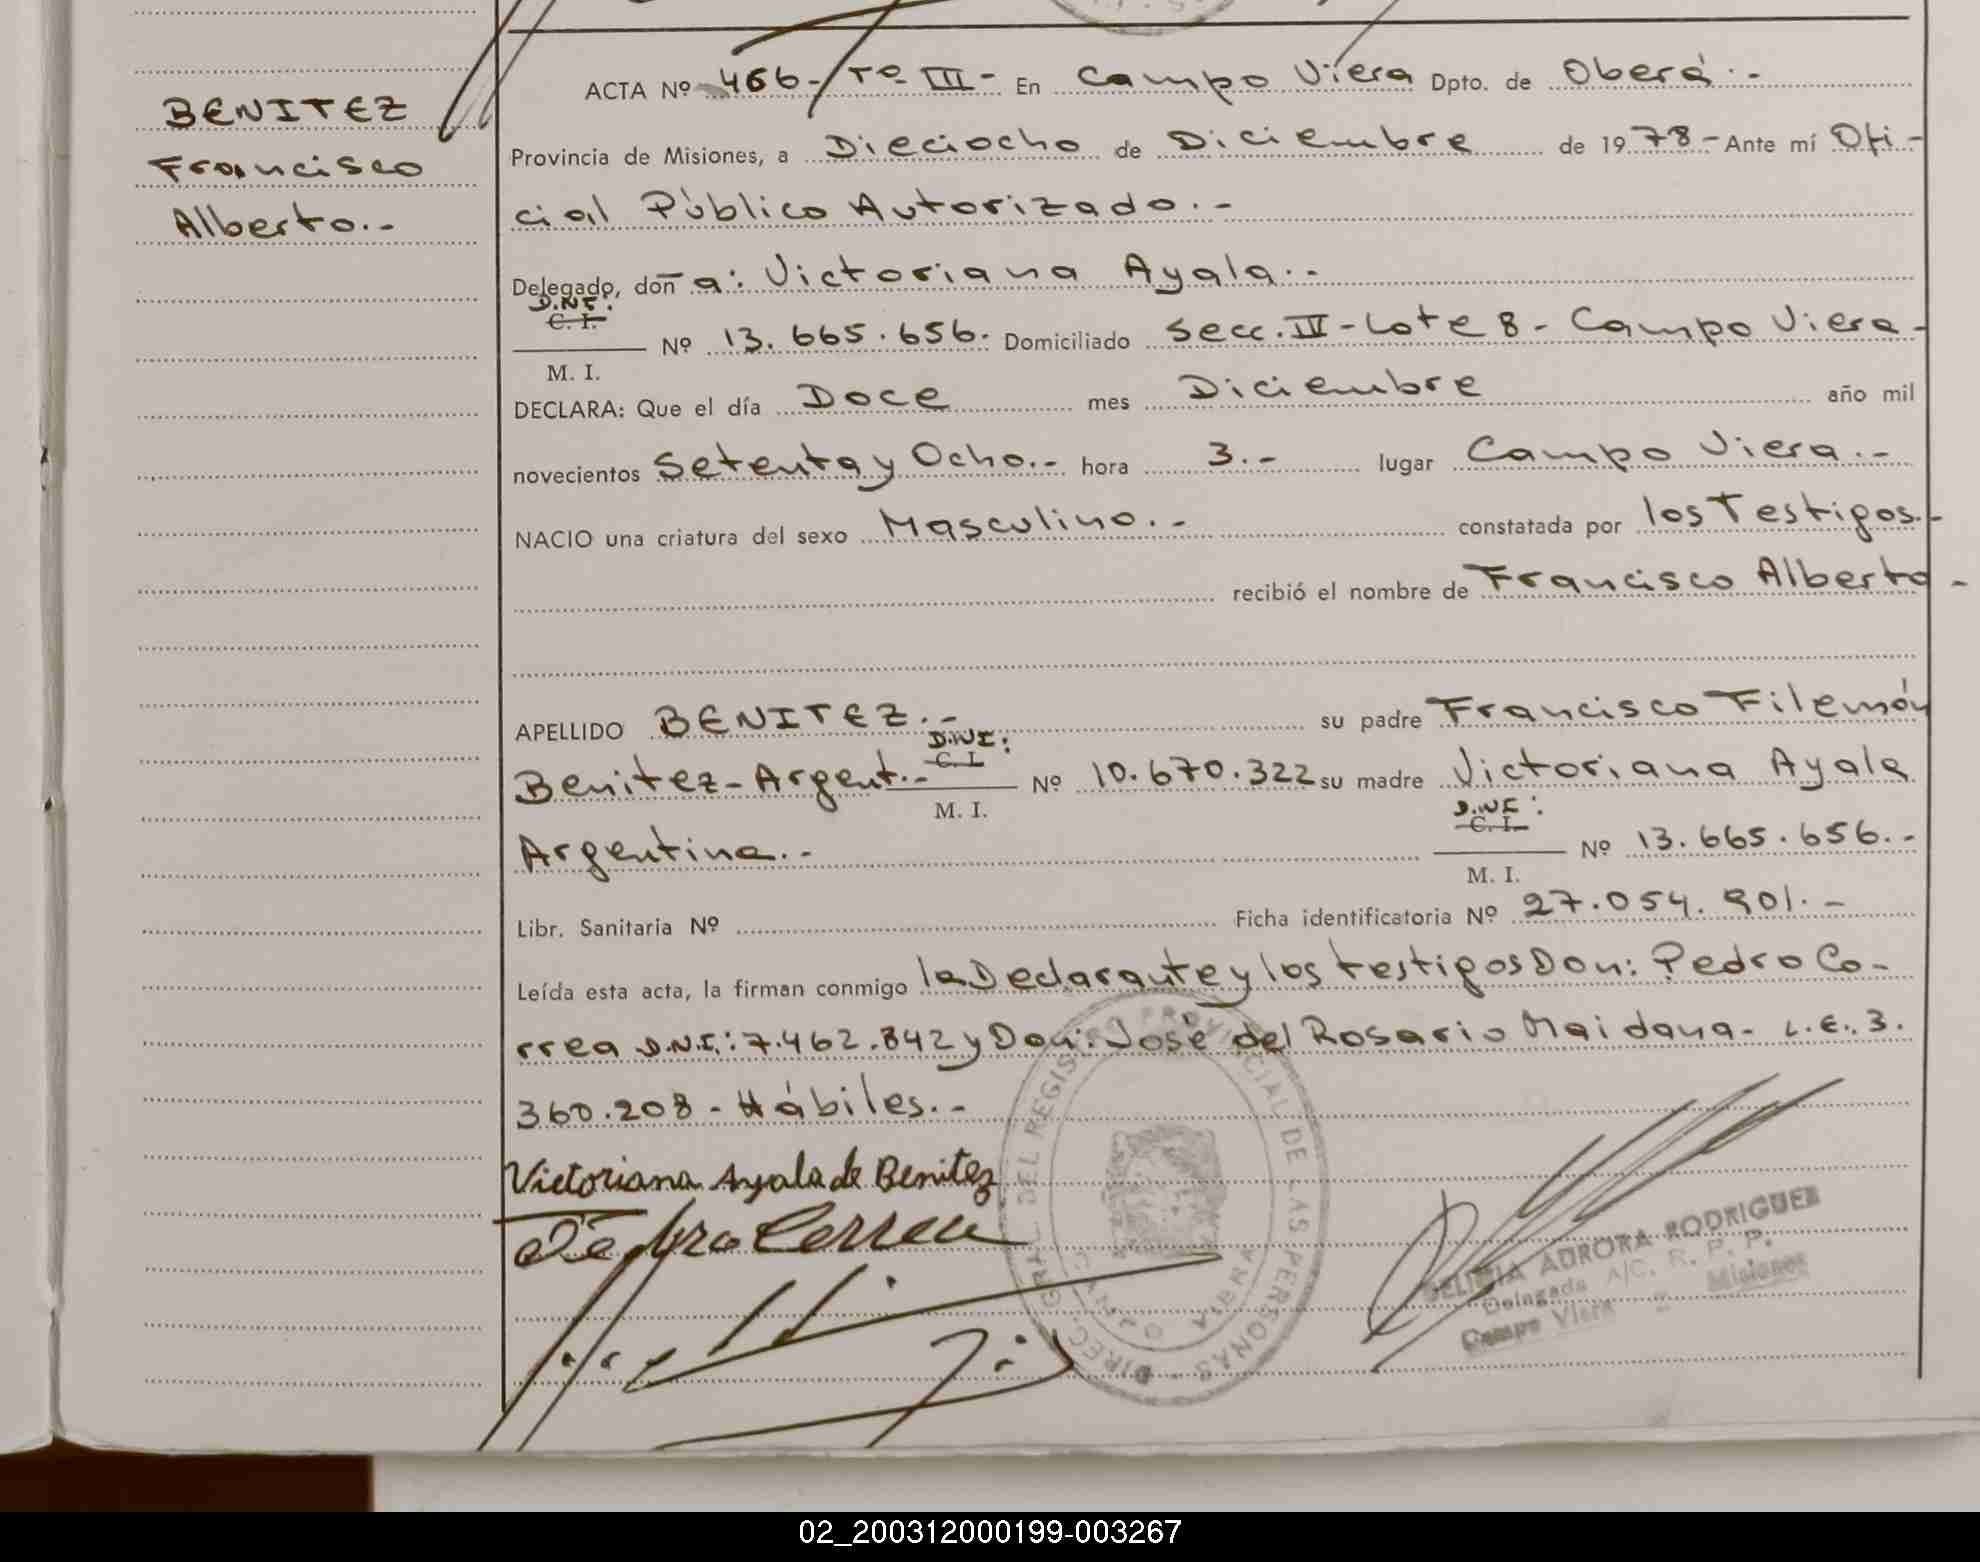 BENITEZ
Francisco
Alberto.-
ACTA Nº 466- Tº III- En Campo Viera Dpto. de Oberá.-
Provincia de Misiones, a Dieciocho de Diciembre de 1978- Ante mí Ofi-
cial Público Autorizado.-
Delegado, don a: Victoriana Ayala.-
D.N.I:
C. I.
Nº 13.665.656. Domiciliado Secc. IV - Lote 8 - Campo Viera-
M. I.
DECLARA: Que el día Doce mes Diciembre año mil
novecientos Setenta y Ocho.- hora 3.- lugar Campo Viera.-
NACIO una criatura del sexo Masculino.- constatada por los Testigos.-
recibió el nombre de Francisco Alberto-
APELLIDO BENITEZ.- su padre Francisco Filemón
D.N.I:
C. I.
Benitez-Argent.- Nº 10.670.322 su madre Victoriana Ayala
M. I.
D.N.I:
C. I.
Argentina.- Nº 13.665.656.-
M. I.
Libr. Sanitaria Nº Ficha identificatoria Nº 27.054.901.-
Leída esta acta, la firman conmigo la Declarante y los testigos Don: Pedro Co-
rrea D.N.I.: 7.462.842 y Don: José del Rosario Maidana- L.E. 3.
360.208 - Hábiles.-
Victoriana Ayala de Benitez
Pedro Correa
DIREC. GRAL. DEL REGISTRO PROVINCIAL DE LAS PERSONAS
DELICIA AURORA RODRIGUEZ
Delegada A/C. R. P. P.
Campo Viera - Misiones
02_200312000199-003267